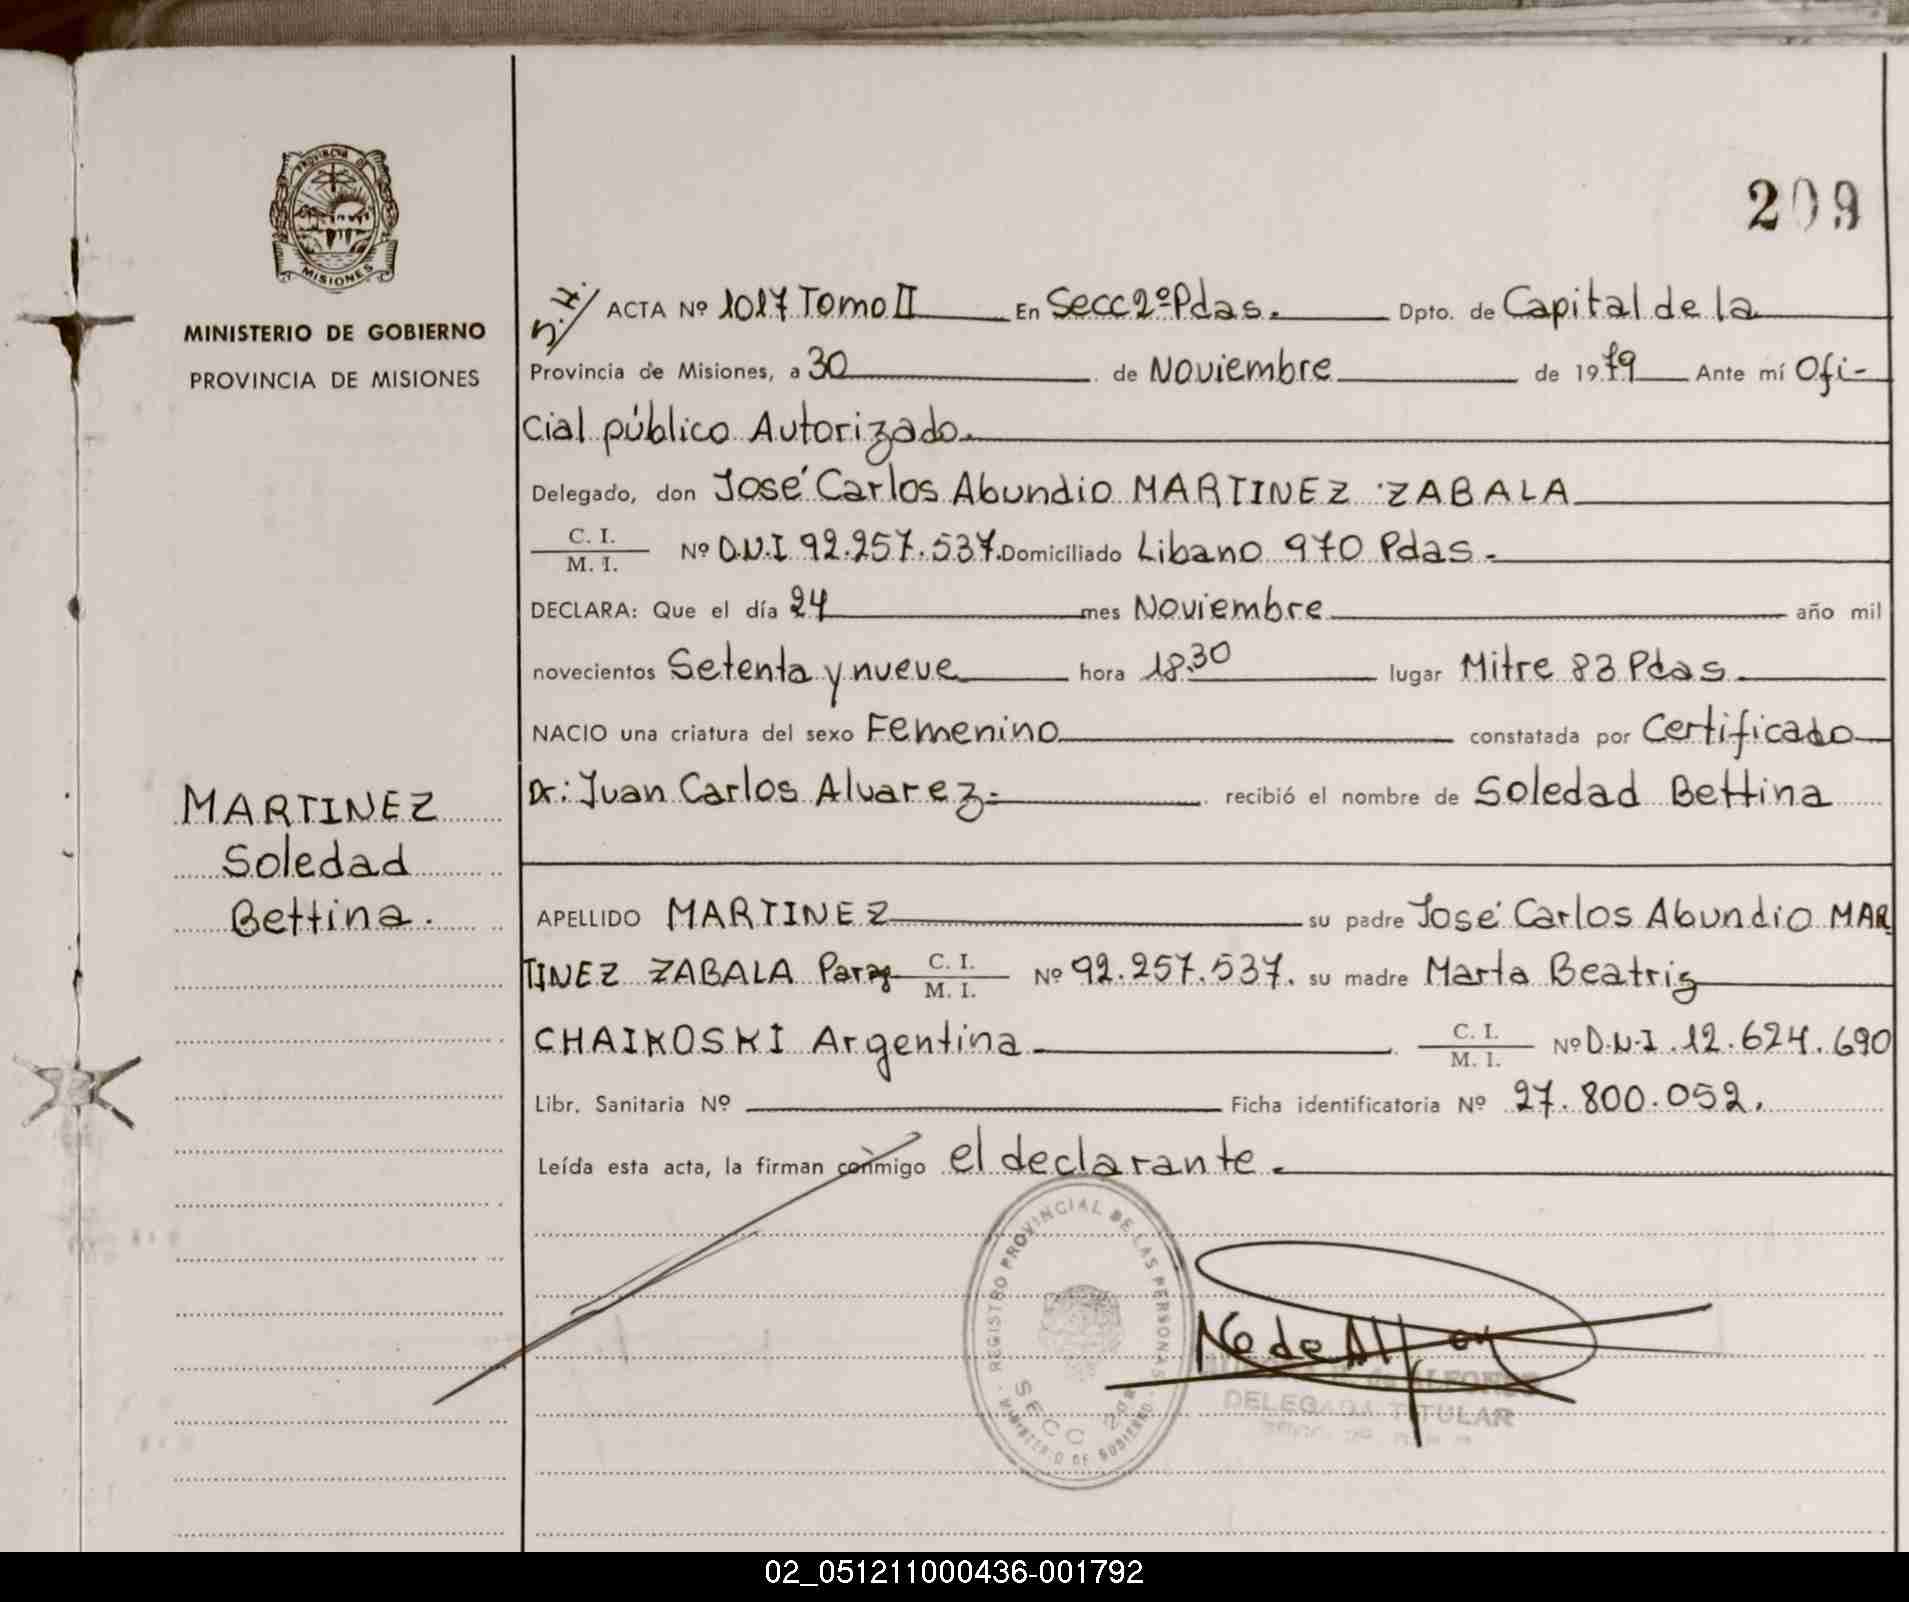 209
PROVINCIA DE
MISIONES
MINISTERIO DE GOBIERNO
PROVINCIA DE MISIONES
ACTA Nº 1017 Tomo II En Secc 2º Pdas. Dpto. de Capital de la
Provincia de Misiones, a 30 de Noviembre de 1979 Ante mí Ofi-
cial público Autorizado.
Delegado, don José Carlos Abundio MARTINEZ ZABALA
C. I.
M. I. Nº D.N.I 92.257.537. Domiciliado Libano 970 Pdas.
DECLARA: Que el día 24 mes Noviembre año mil
novecientos Setenta y nueve hora 18.30 lugar Mitre 83 Pdas.
NACIO una criatura del sexo Femenino constatada por Certificado
Dr: Juan Carlos Alvarez recibió el nombre de Soledad Bettina
MARTINEZ
Soledad
Bettina.
APELLIDO MARTINEZ su padre José Carlos Abundio MAR
TINEZ ZABALA Parag C. I.
M. I. Nº 92.257.537. su madre Marta Beatriz
CHAIKOSKI Argentina C. I.
M. I. Nº D.N.I. 12.624.690
Libr. Sanitaria Nº Ficha identificatoria Nº 27.800.052.
Leída esta acta, la firman conmigo el declarante.
REGISTRO PROVINCIAL DE LAS PERSONAS
SECC 2DA
MINISTERIO DE GOBIERNO
de ALFONSO
DELEGADA TITULAR
02_051211000436-001792